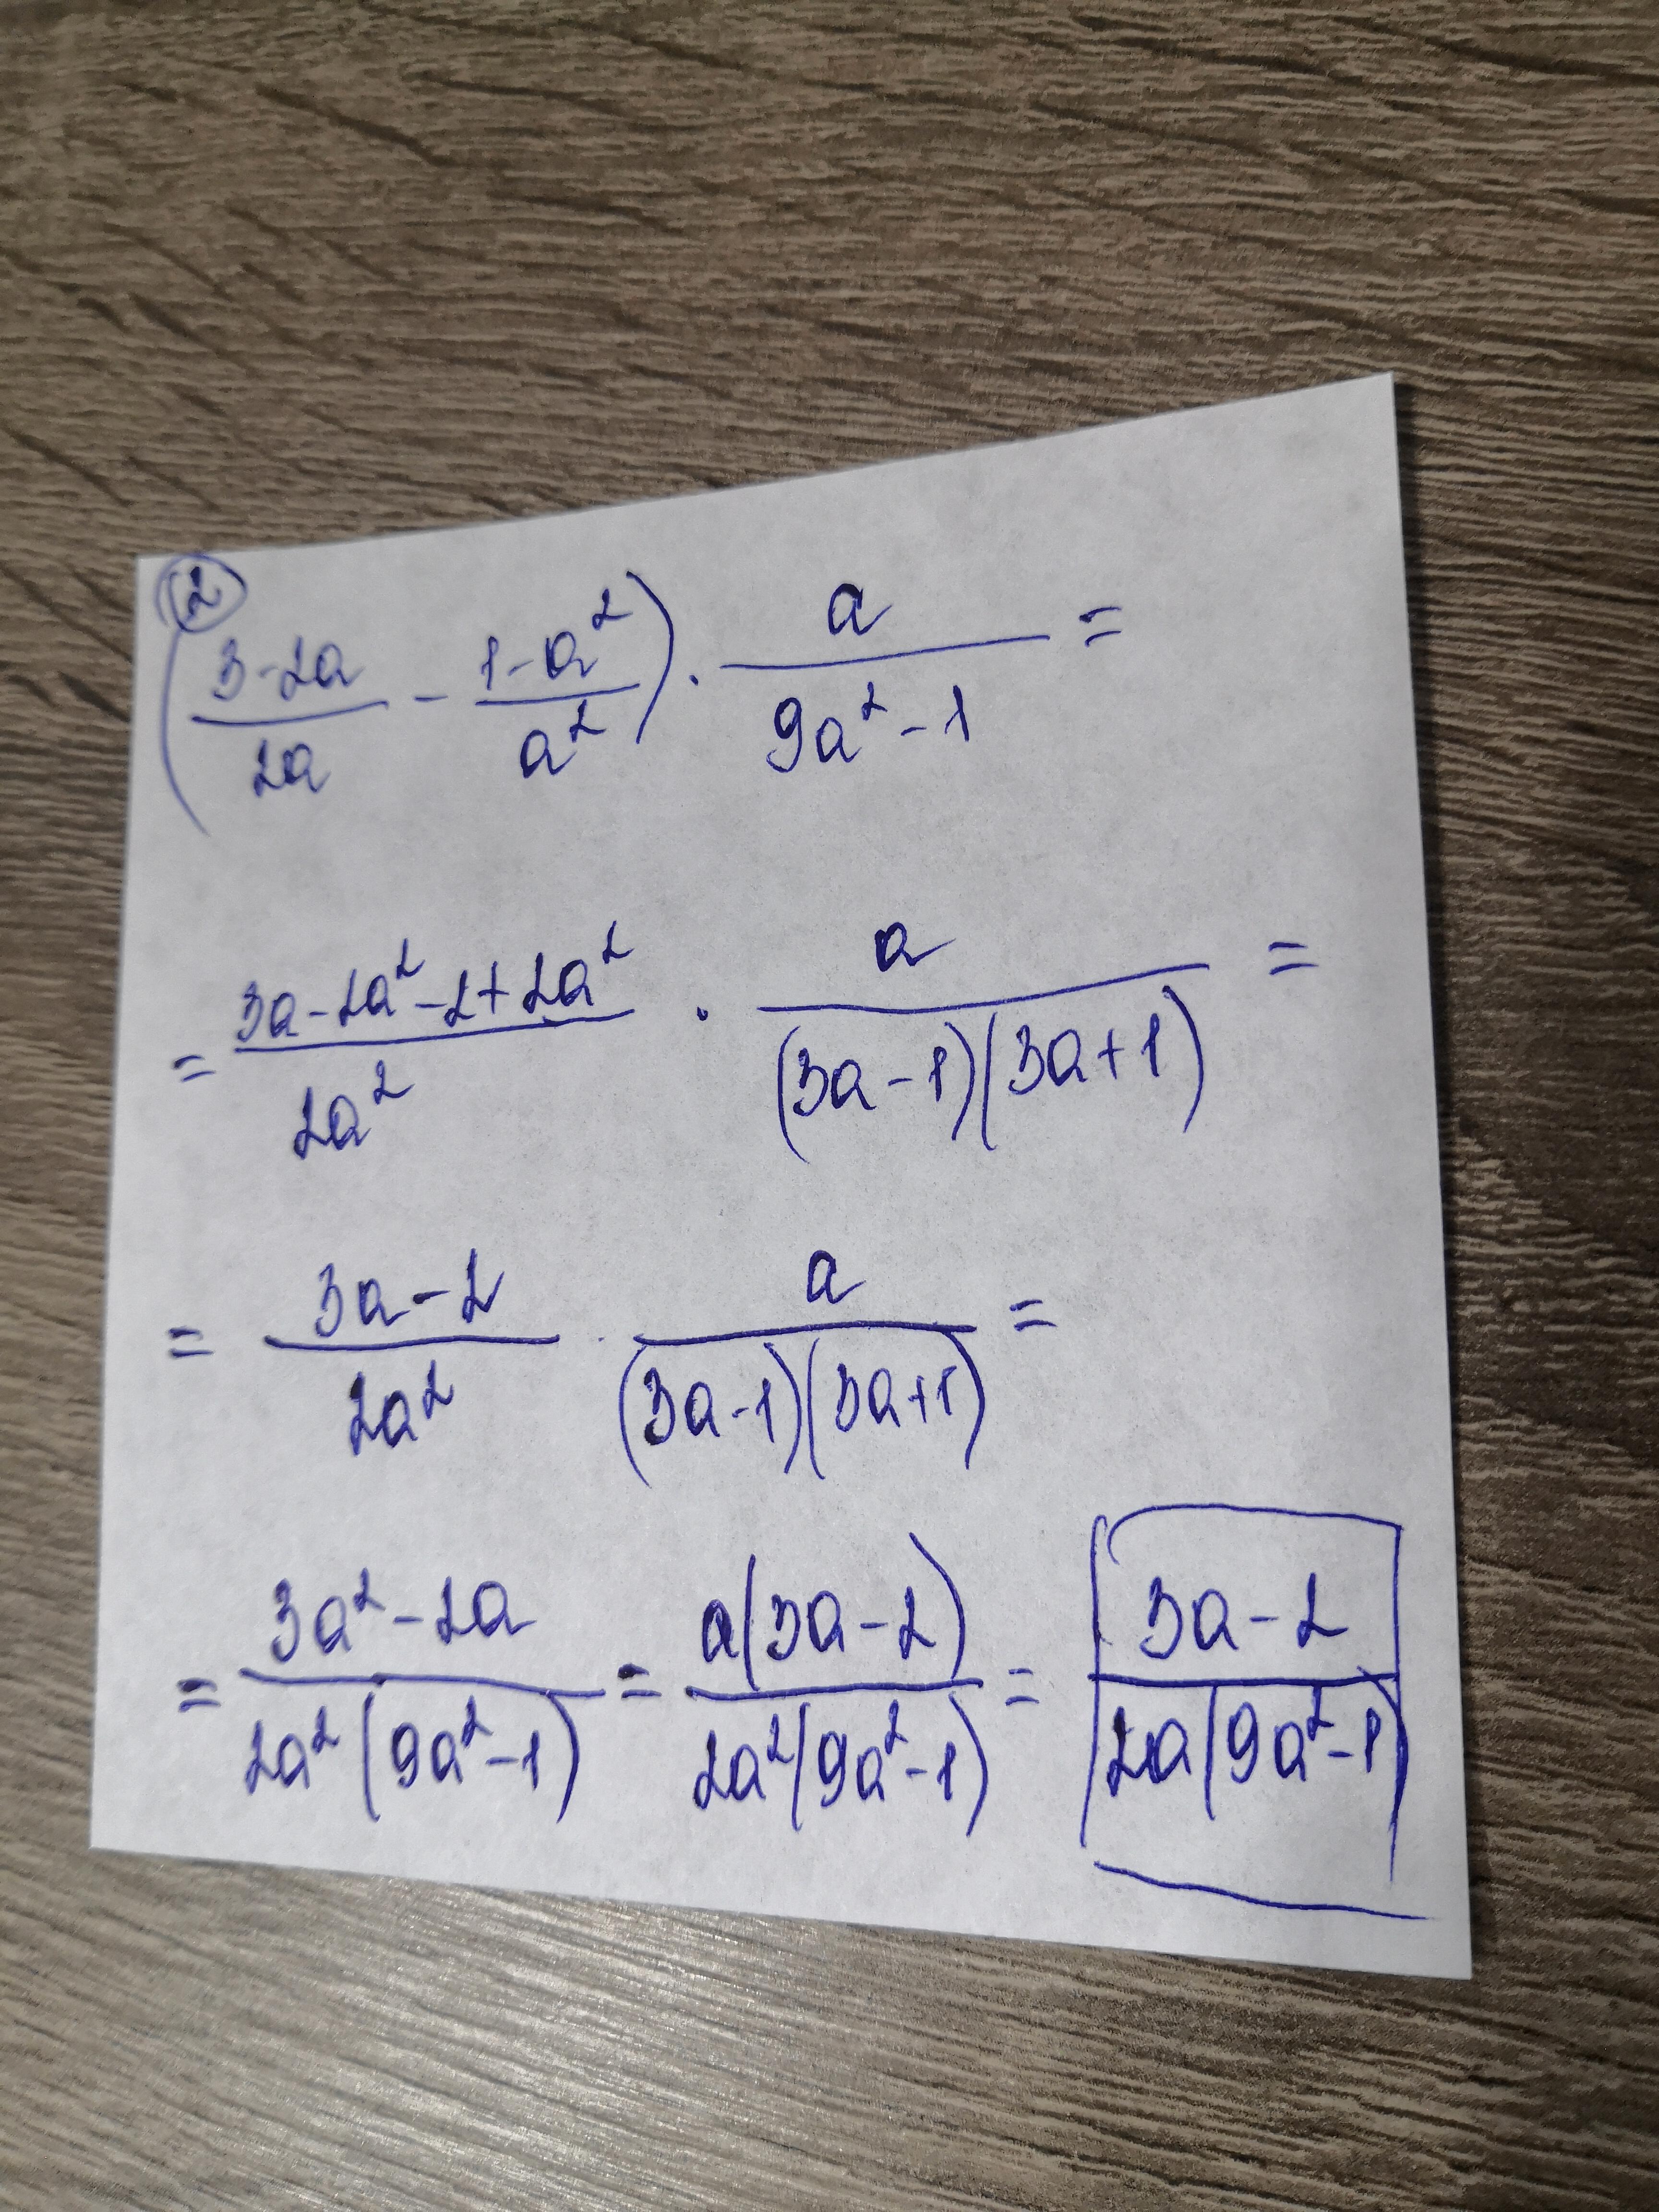 ②
(3-2a / 2a - 1-a² / a²) · a / 9a²-1 =
= 3a-2a²-2+2a² / 2a² · a / (3a-1)(3a+1) =
= 3a-2 / 2a² · a / (3a-1)(3a+1) =
= 3a²-2a / 2a²(9a²-1) = a(3a-2) / 2a²(9a²-1) = 3a-2 / 2a(9a²-1)